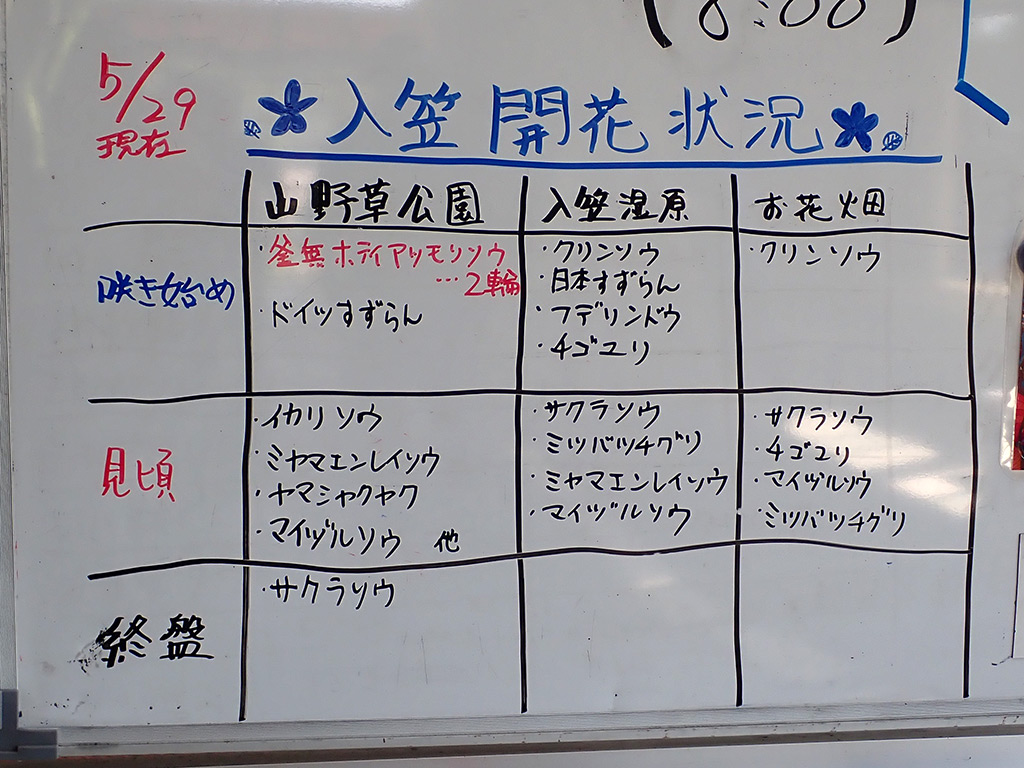 (8:00)
5/29
現在
入笠 開花 状況
山野草公園 入笠湿原 お花畑
咲き始め
・釜無ホテイアツモリソウ
…2輪
・ドイツすずらん
・クリンソウ
・日本すずらん
・フデリンドウ
・チゴユリ
・クリンソウ
見頃
・イカリソウ
・ミヤマエンレイソウ
・ヤマシャクヤク
・マイヅルソウ 他
・サクラソウ
・ミツバツチグリ
・ミヤマエンレイソウ
・マイヅルソウ
・サクラソウ
・チゴユリ
・マイヅルソウ
・ミツバツチグリ
終盤
・サクラソウ